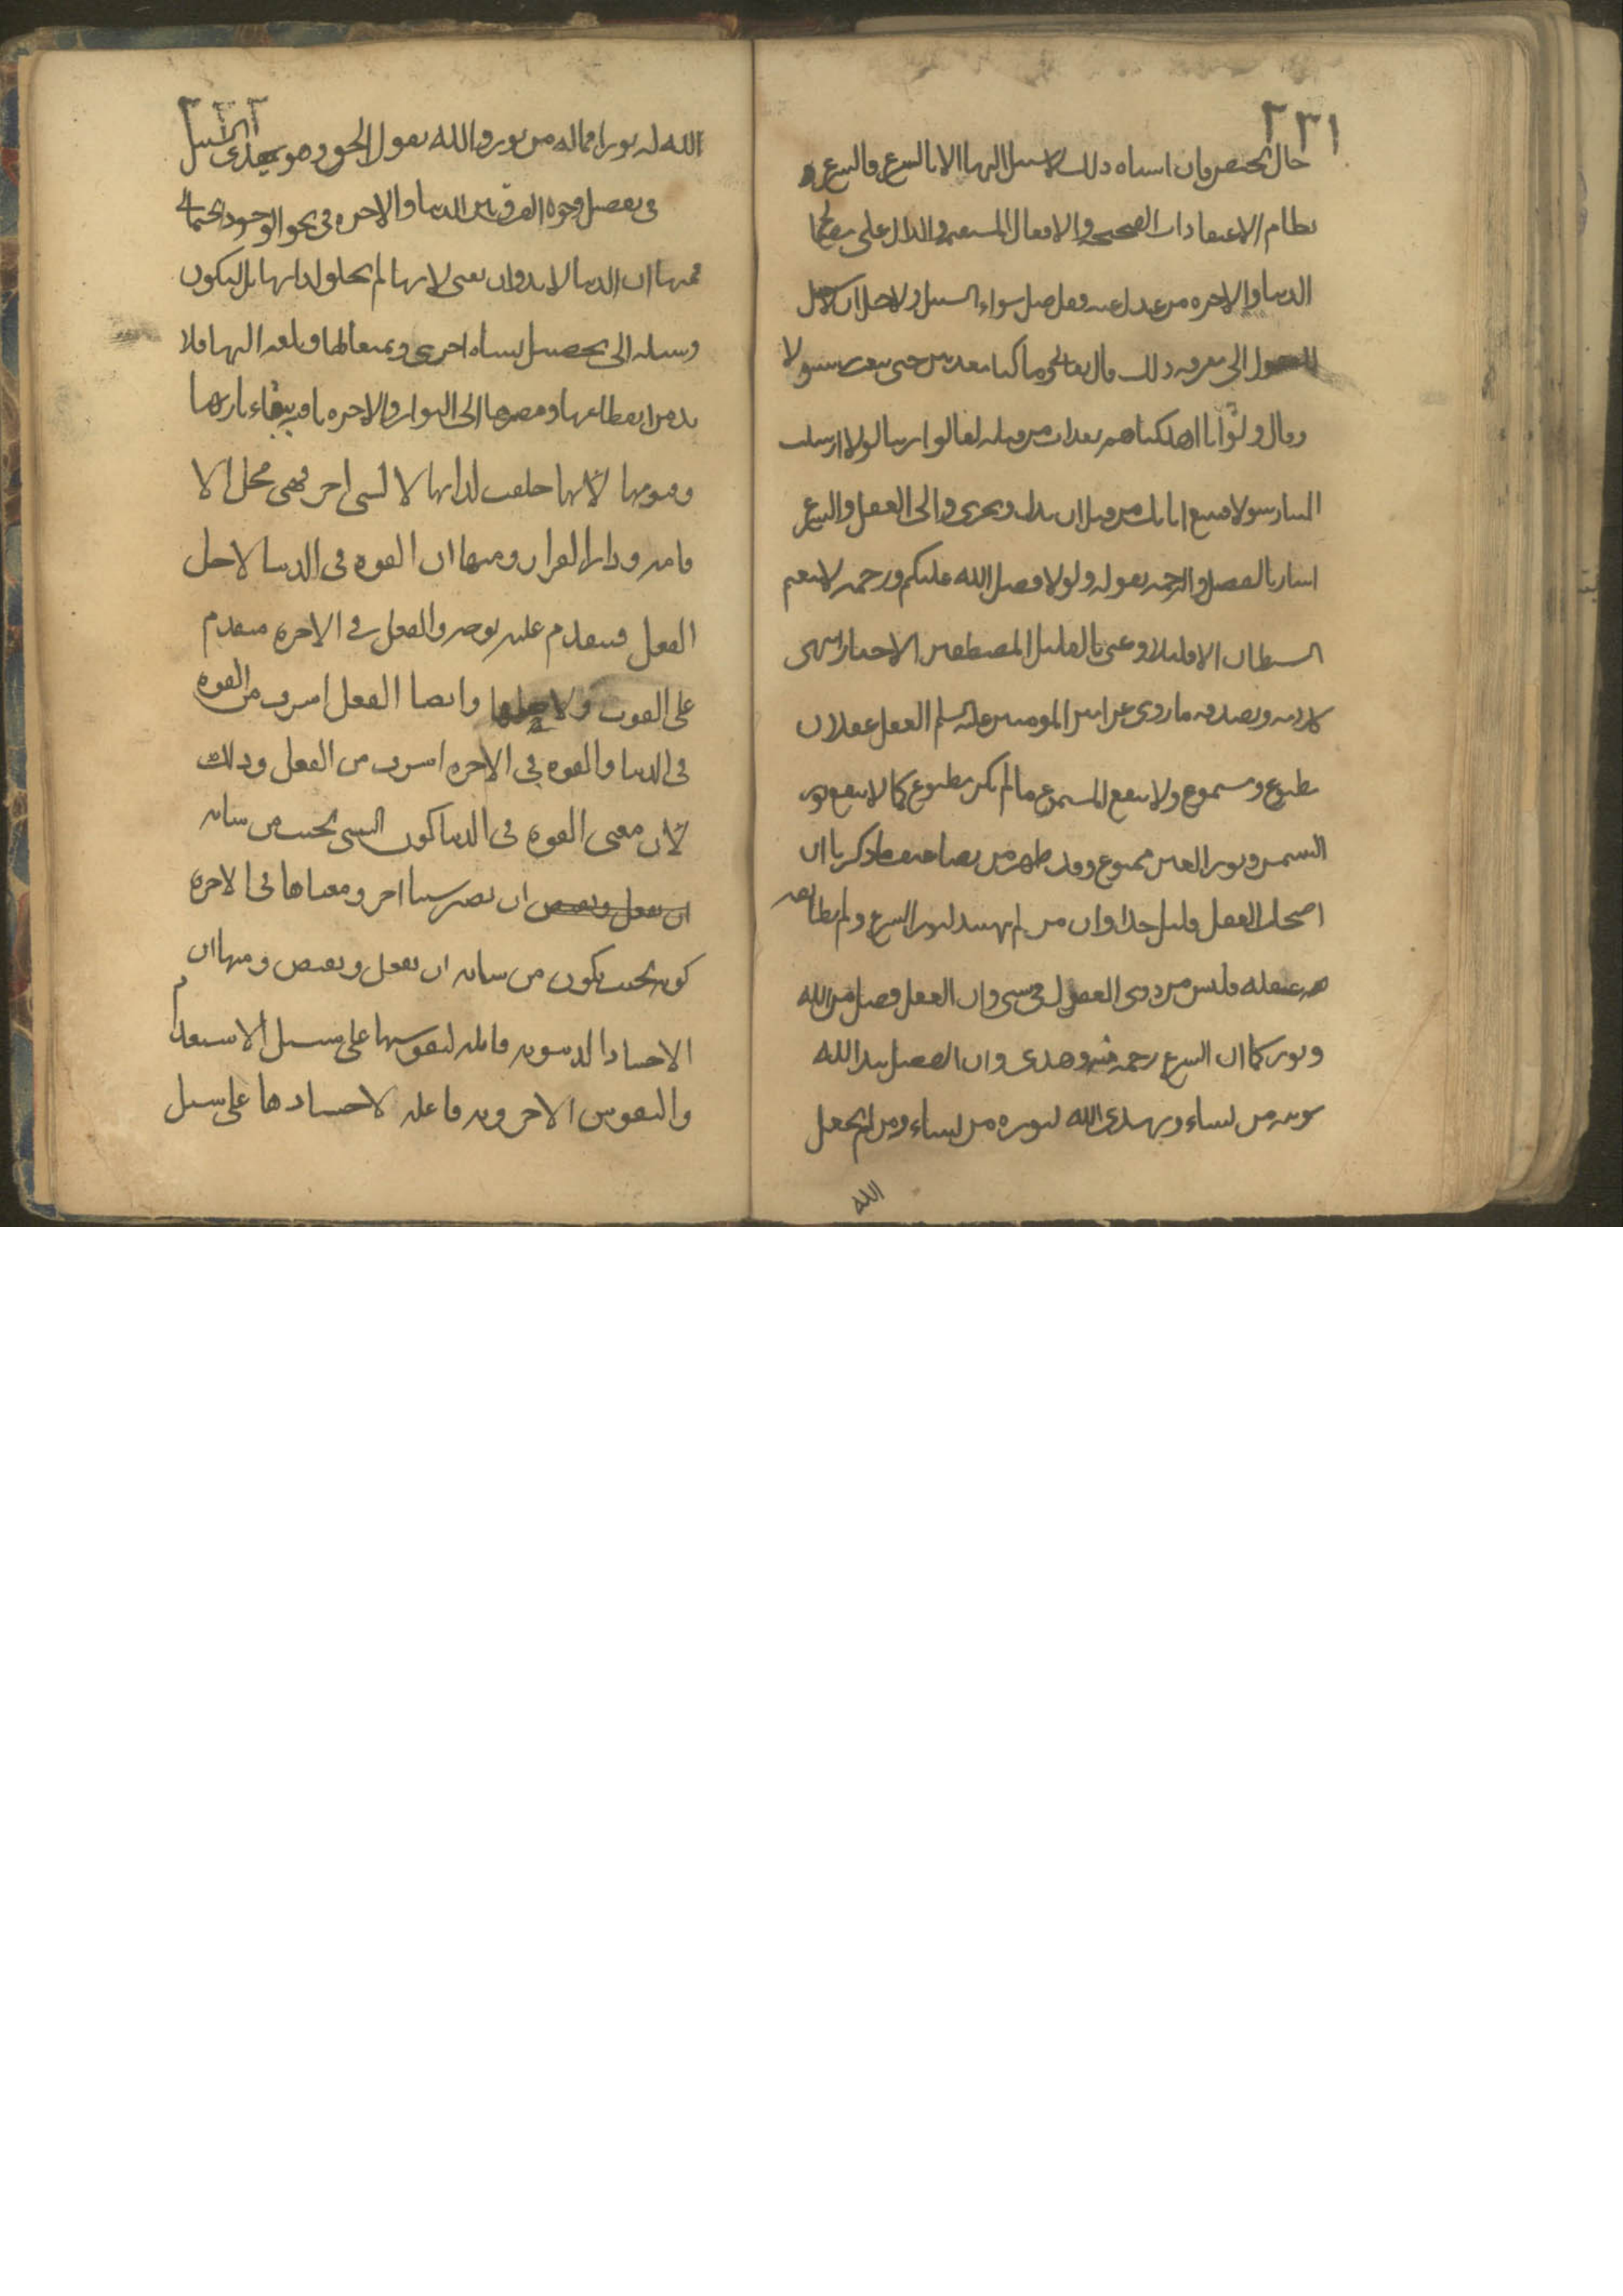 ٢٣١
حال الحيض فان اشباه ذلك لا سبيل اليها الا بالشرع فالشرع
نظام الاعتقادات الصحيحة والافعال المستقيمة والدال على مصالح
الدنيا والاخرة من عدل عنه فقد ضل سواء السبيل ولاجل ان لا سبيل
للعقول الى معرفة ذلك قال تعالى وما كنا معذبين حتى نبعث رسولا
وقال ولو انا اهلكناهم بعذاب من قبله لقالوا ربنا لولا ارسلت
الينا رسولا فنتبع اياتك من قبل ان نذل ونخزى والى العقل والشرع
اشار بالفضل والرحمة بقوله ولولا فضل الله عليكم ورحمته لاتبعتم
الشيطان الا قليلا وعنى بالقليل المصطفين الاخيار انتهى
كلامه ويصدقه ما روى عن امير المومنين عليه السلم العقل عقلان
مطبوع ومسموع ولا ينفع المسموع ما لم يكن مطبوع كما لا ينفع نور
الشمس ونور العين ممنوع وقد ظهر من تضاعيف ما ذكر ان
اصحاب العقل قليل جدا وان من لم يهتد لنور الشرع ولم يطابقه
عقله فليس من ذوى العقول فى شى وان العقل فضل من الله
ونور كما ان الشرع رحمة منه وهدى وان الفضل بيد الله
يوتيه من يشاء ويهدى الله لنوره من يشاء ومن لم يجعل
الله
٢٣٢
الله له نورا فما له من نور والله يقول الحق وهو يهدى السبيل
فى تفصيل وجوه الفرق بين الدنيا والاخرة فى نحو الوجود الجسمانى
فمنها ان الدنيا لابد وان تفنى لانها لم تخلق لذاتها بل ليكون
وسيلة الى تحصيل نشاة اخرى ويتمتعا لها وبلغة اليها فلا
بد من انقطاعها ومصيرها الى البوار والاخرة باقية ببقاء بارئها
وقيومها لانها خلقت لذاتها لا لشى اخر فهى محل الا
قامة ودار القرار ومنها ان القوة فى الدنيا لاجل
الفعل فيتقدم عليه بوجه والفعل فى الاخرة متقدم
على القوة ولاجلها وايضا الفعل اشرف من القوة
فى الدنيا والقوة فى الاخرة اشرف من الفعل وذلك
لان معنى القوة فى الدنيا كون الشى بحيث من شانه
ان يفعل ويفيض ان يصير شيئا اخر ومعناها فى الاخرة
كونه بحيث يكون من شانه ان يفعل ويفيض ومنها ان
الاجساد الدنيوية قابلة لنفوسها على سبيل الاستعداد
والنفوس الاخروية فاعلة لاجسادها على سبيل